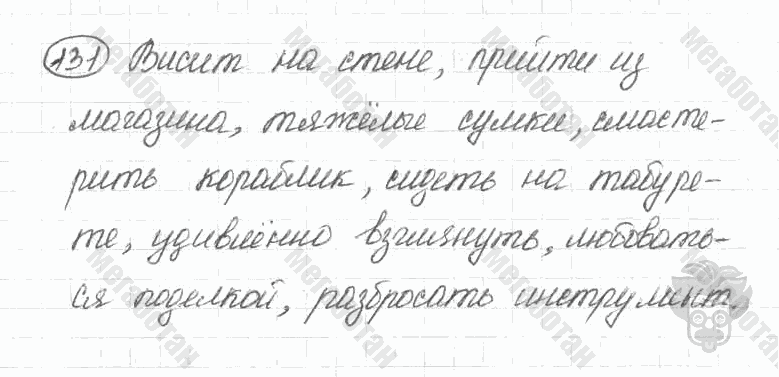 131 Висит на стене, прийти из
магазина, тяжёлые сумки, смасте-
рить кораблик, сидеть на табуре-
те, удивлённо взглянуть, любовать-
ся поделкой, разбросать инструмент.
мегаботан
мегаботан
мегаботан
мегаботан
мегаботан
мегаботан
мегаботан
мегаботан